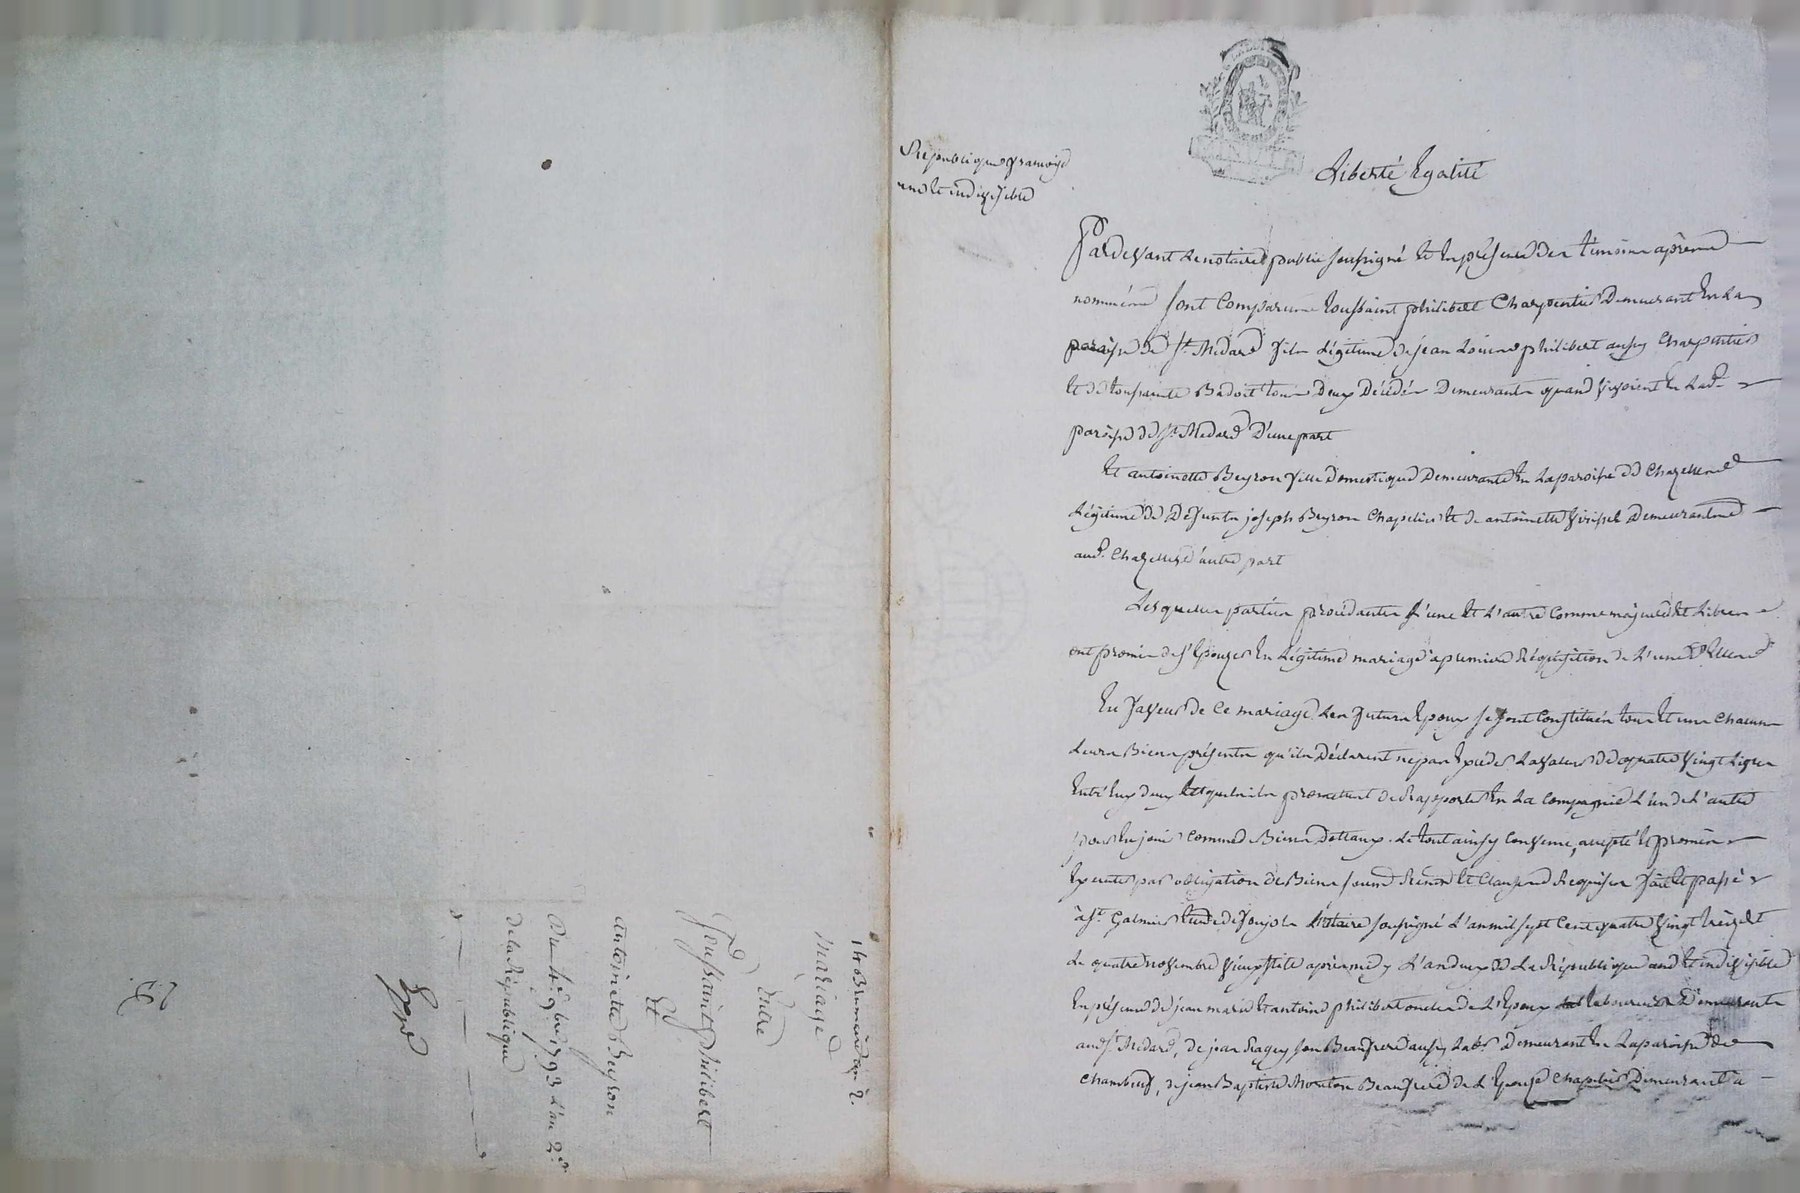 14 Brumaire an 2.
Mariage
Entre
Toussaint philibert
Et
antoinette Beyron
Du 4e 9bre 1793 L'an 2e
de la Republique
Republique françoise
une et indivisible
Liberté Egalité
Pardevant Le notaire public soussigné Et En présence des temoins aprés
nommés sont Comparus toussaint philibert Charpentier Demeurant En La
paroisse de St Medard fils Légitime de jean Louis philibert aussy Charpentier
Et de toussainte Badoit tous Deux Décédés Demeurants quand vivoient En Lad.
paroisse de St Medard D'une part
Et antoinette Beyron fille Domestique Demeurante En La paroise de Chazelles
Légitime de Defunts joseph Beyron Chapelier Et de antoinette Demeurants
aud. Chazelles d'autre part
Lesquelles parties procédantes L'une Et L'autre Comme majeures Et Libres
ont promis de s'Epouzer En Légitime mariage a premiere Réquisition de L'une D'Elles
En faveur de Ce mariage Les futurs Epoux se sont Constitués tous Et uns Chacuns
Leurs Biens présents qu'ils Déclarent ne pas Exceder La valeur de quatre vingt Livres
Entr'Eux deux Lesquels ils promettent de Rapporter En La Compagnie L'un de L'autre
pour En jouir Comme de Biens Dottaux. Le tout ainsy Convenu, accepté Et promis
Executer par obligation de Biens soumis Renon. Et Clauses Requises fait Et passé
à St Galmier Etude de Notaire soussigné L'an mil sept Cent quatre vingt treize Et
Le quatre novembre vieux stile aprèsmidy L'an deux de La République une Et indivisible
En présence de jean marie Et antoine philibert oncles de L'Epoux Laboureurs Demeurants
aud. St Medard, de jean Ragey son Beaufrere aussy Lab. Demeurant En La paroisse de
Chambeuf, de jean Baptiste Mouton Beaufrere de L'Epouse Chapelier Demeurant à